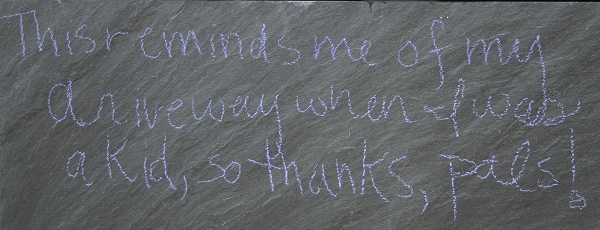 This reminds me of my
driveway when I was
a kid, so thanks, pals!